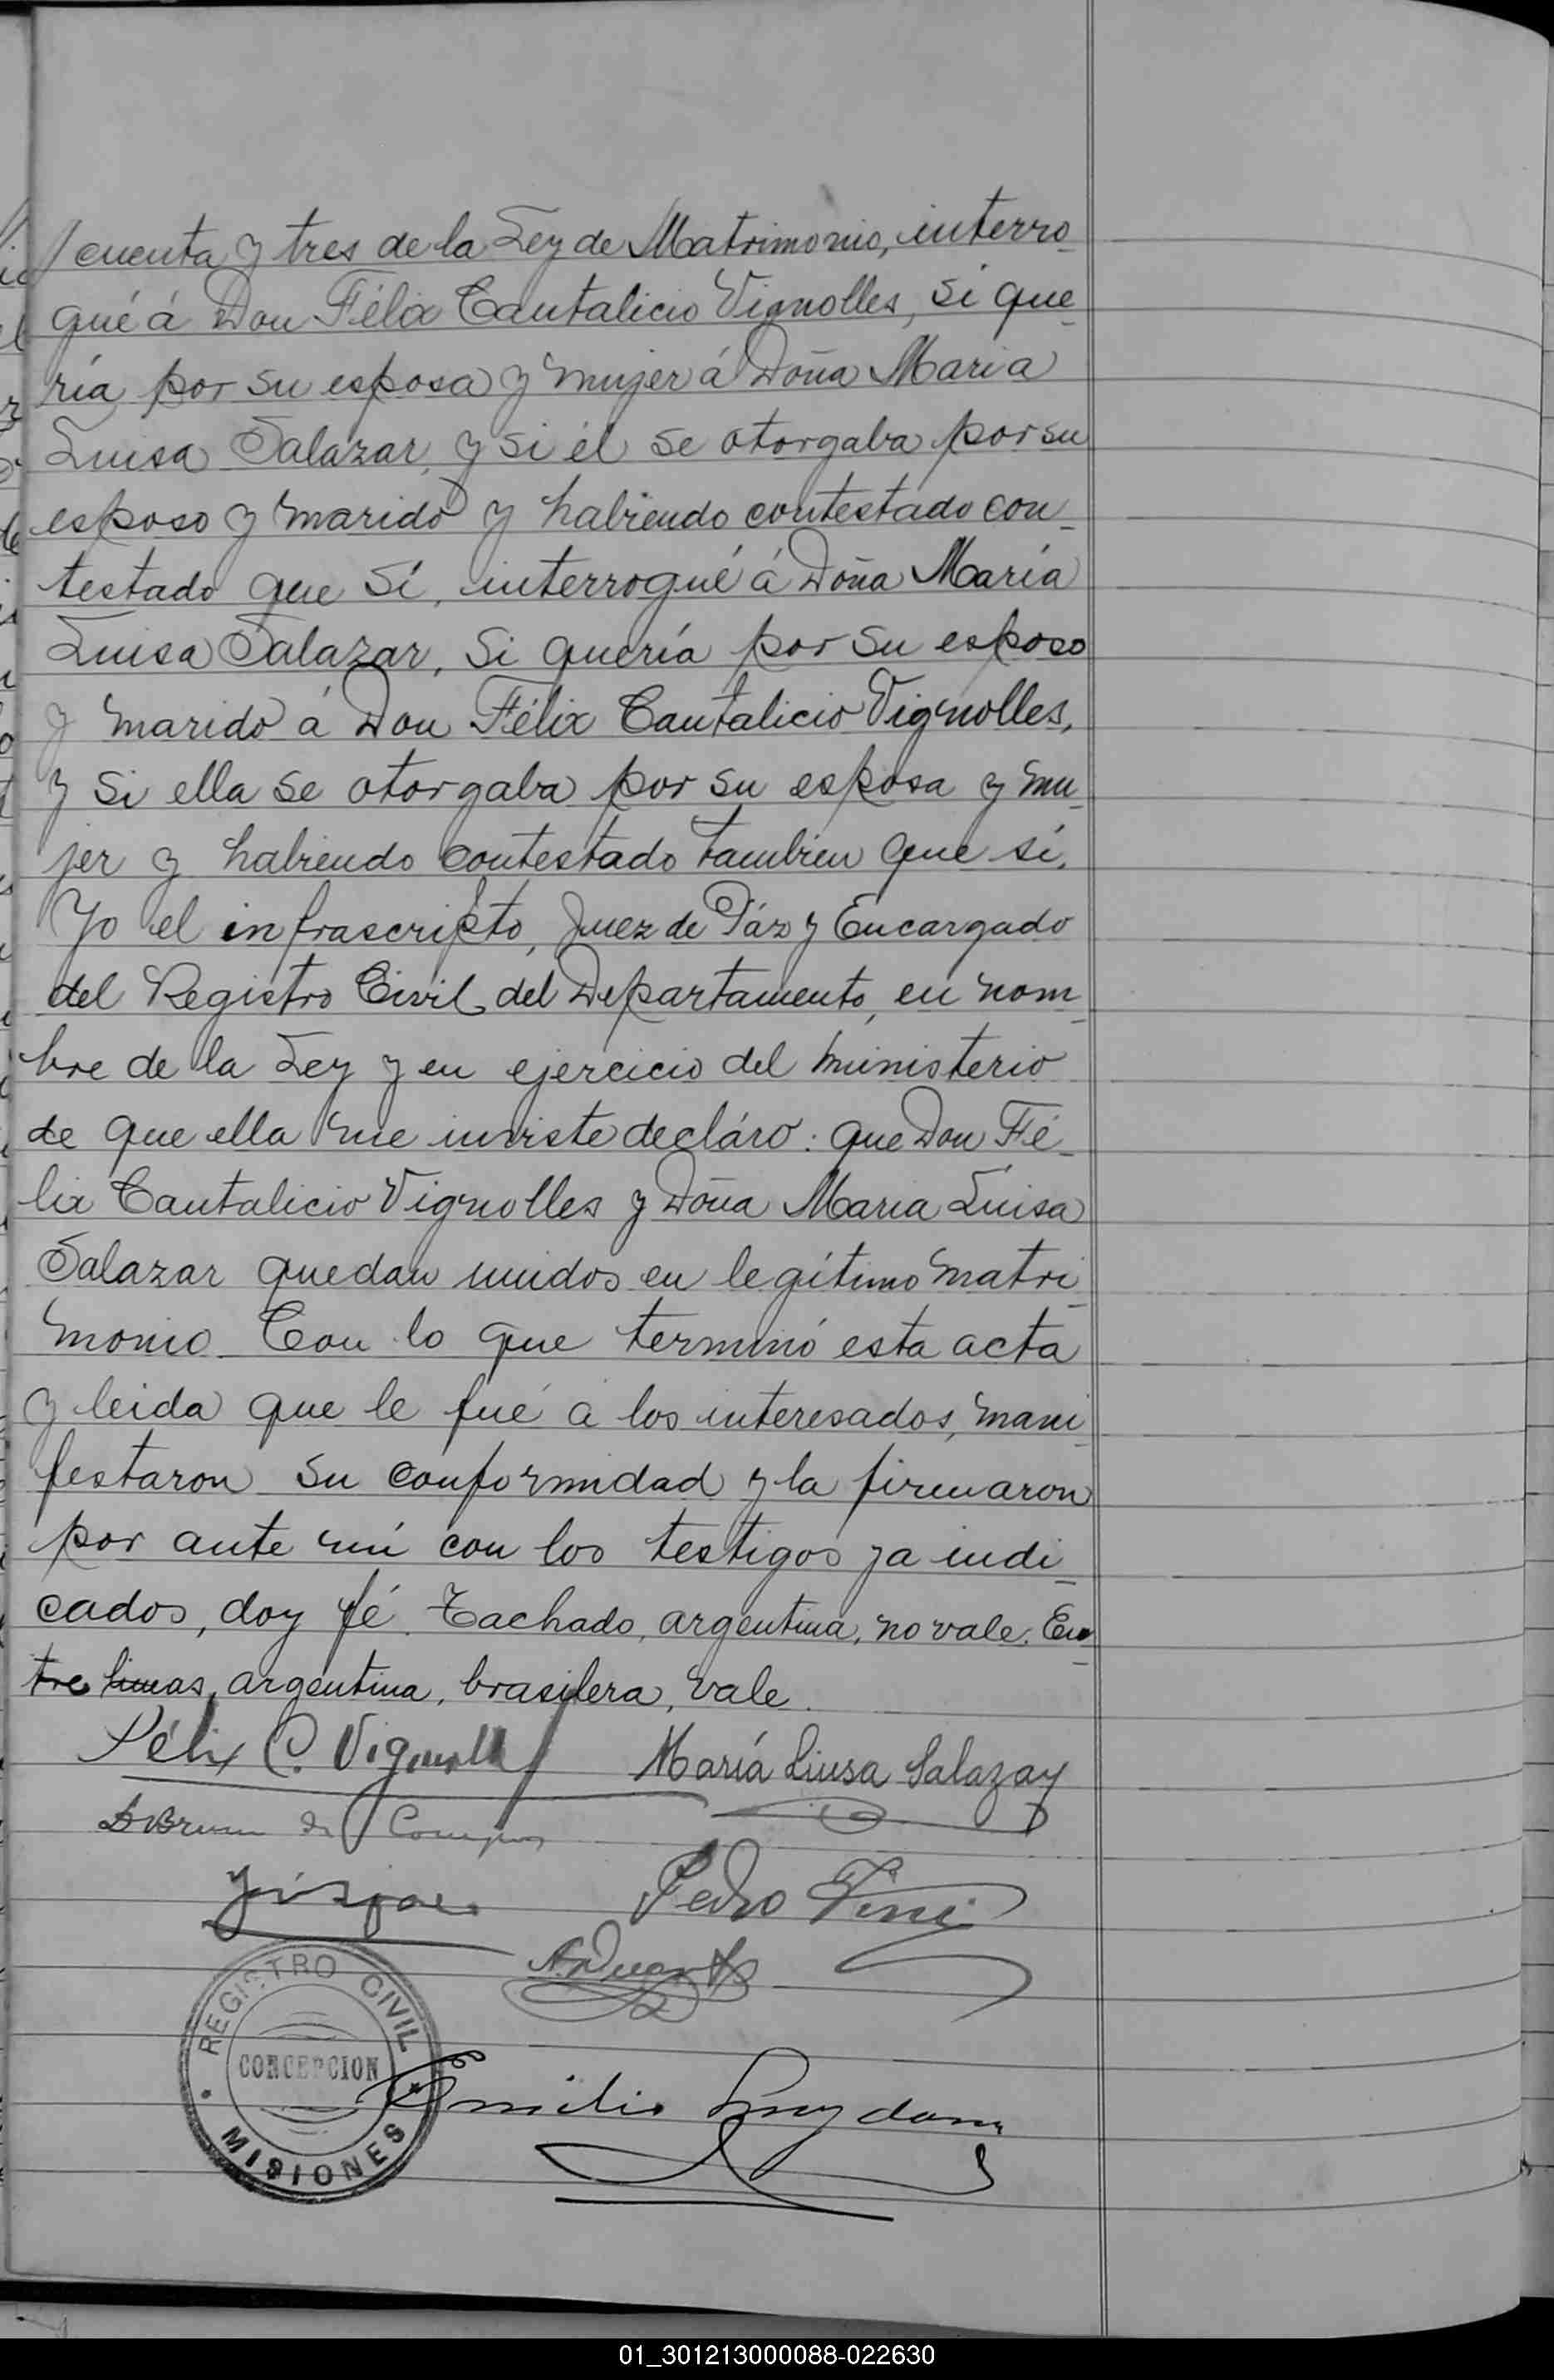 / cuenta y tres de la Ley de Matrimonio, interro_
gué á Don Félix Cantalicio Vignolles, si que_
ría por su esposa y mujer á Doña Maria
Luisa Salazar, y si él se otorgaba por su
esposo y marido y habiendo contestado con_
testado que Sí, interrogué á Doña María
Luisa Salazar, Si quería por su esposo
y marido á Don Félix Cantalicio Vignolles,
y si ella se otorgaba por su esposa y mu_
jer y habiendo contestado tambien que si,
Yo el infrascripto, Juez de Páz y Encargado
del Registro Civil del Departamento, en nom_
bre de la Ley y en ejercicio del ministerio
de que ella me inviste decláro: que Don Fé_
lix Cantalicio Vignolles y Doña Maria Luisa
Salazar quedan unidos en legítimo matri_
monio. Con lo que terminó esta acta
y leida que le fué á los interesados, mani_
festaron su conformidad y la firmaron
por ante mí con los testigos ya indi_
cados, doy fé. Tachado, argentina, no vale. En_
tre lineas, argentina, brasilera, vale.
Félix C. Vignolles María Luisa Salazar
Pedro
Emilio
REGISTRO CIVIL
CONCEPCION
MISIONES
01_301213000088-022630